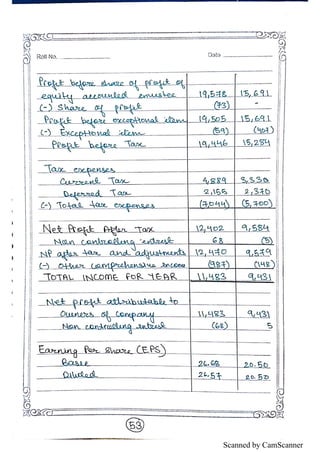 Roll No. Date
Profit before share of profit of
equity accounted investee 19,578 15,691
(-) Share of profit (73) -
Profit before exceptional item 19,505 15,691
(-) Exceptional item (59) (407)
Profit before Tax 19,446 15,284
Tax expenses
Current Tax 4,889 3,330
Deferred Tax 2,155 2,370
(-) Total tax expenses (7,044) (5,700)
Net Profit After Tax 12,402 9,584
Non controlling interest 68 (5)
NP after tax and adjustments 12,470 9,579
(-) Other comprehensive income (987) (148)
TOTAL INCOME FOR YEAR 11,483 9,431
Net profit attributable to
Owners of company 11,483 9,431
Non controlling interest (68) 5
Earning Per Share (EPS)
Basic 26.68 20.50
Diluted 26.57 20.50
53
Scanned by CamScanner